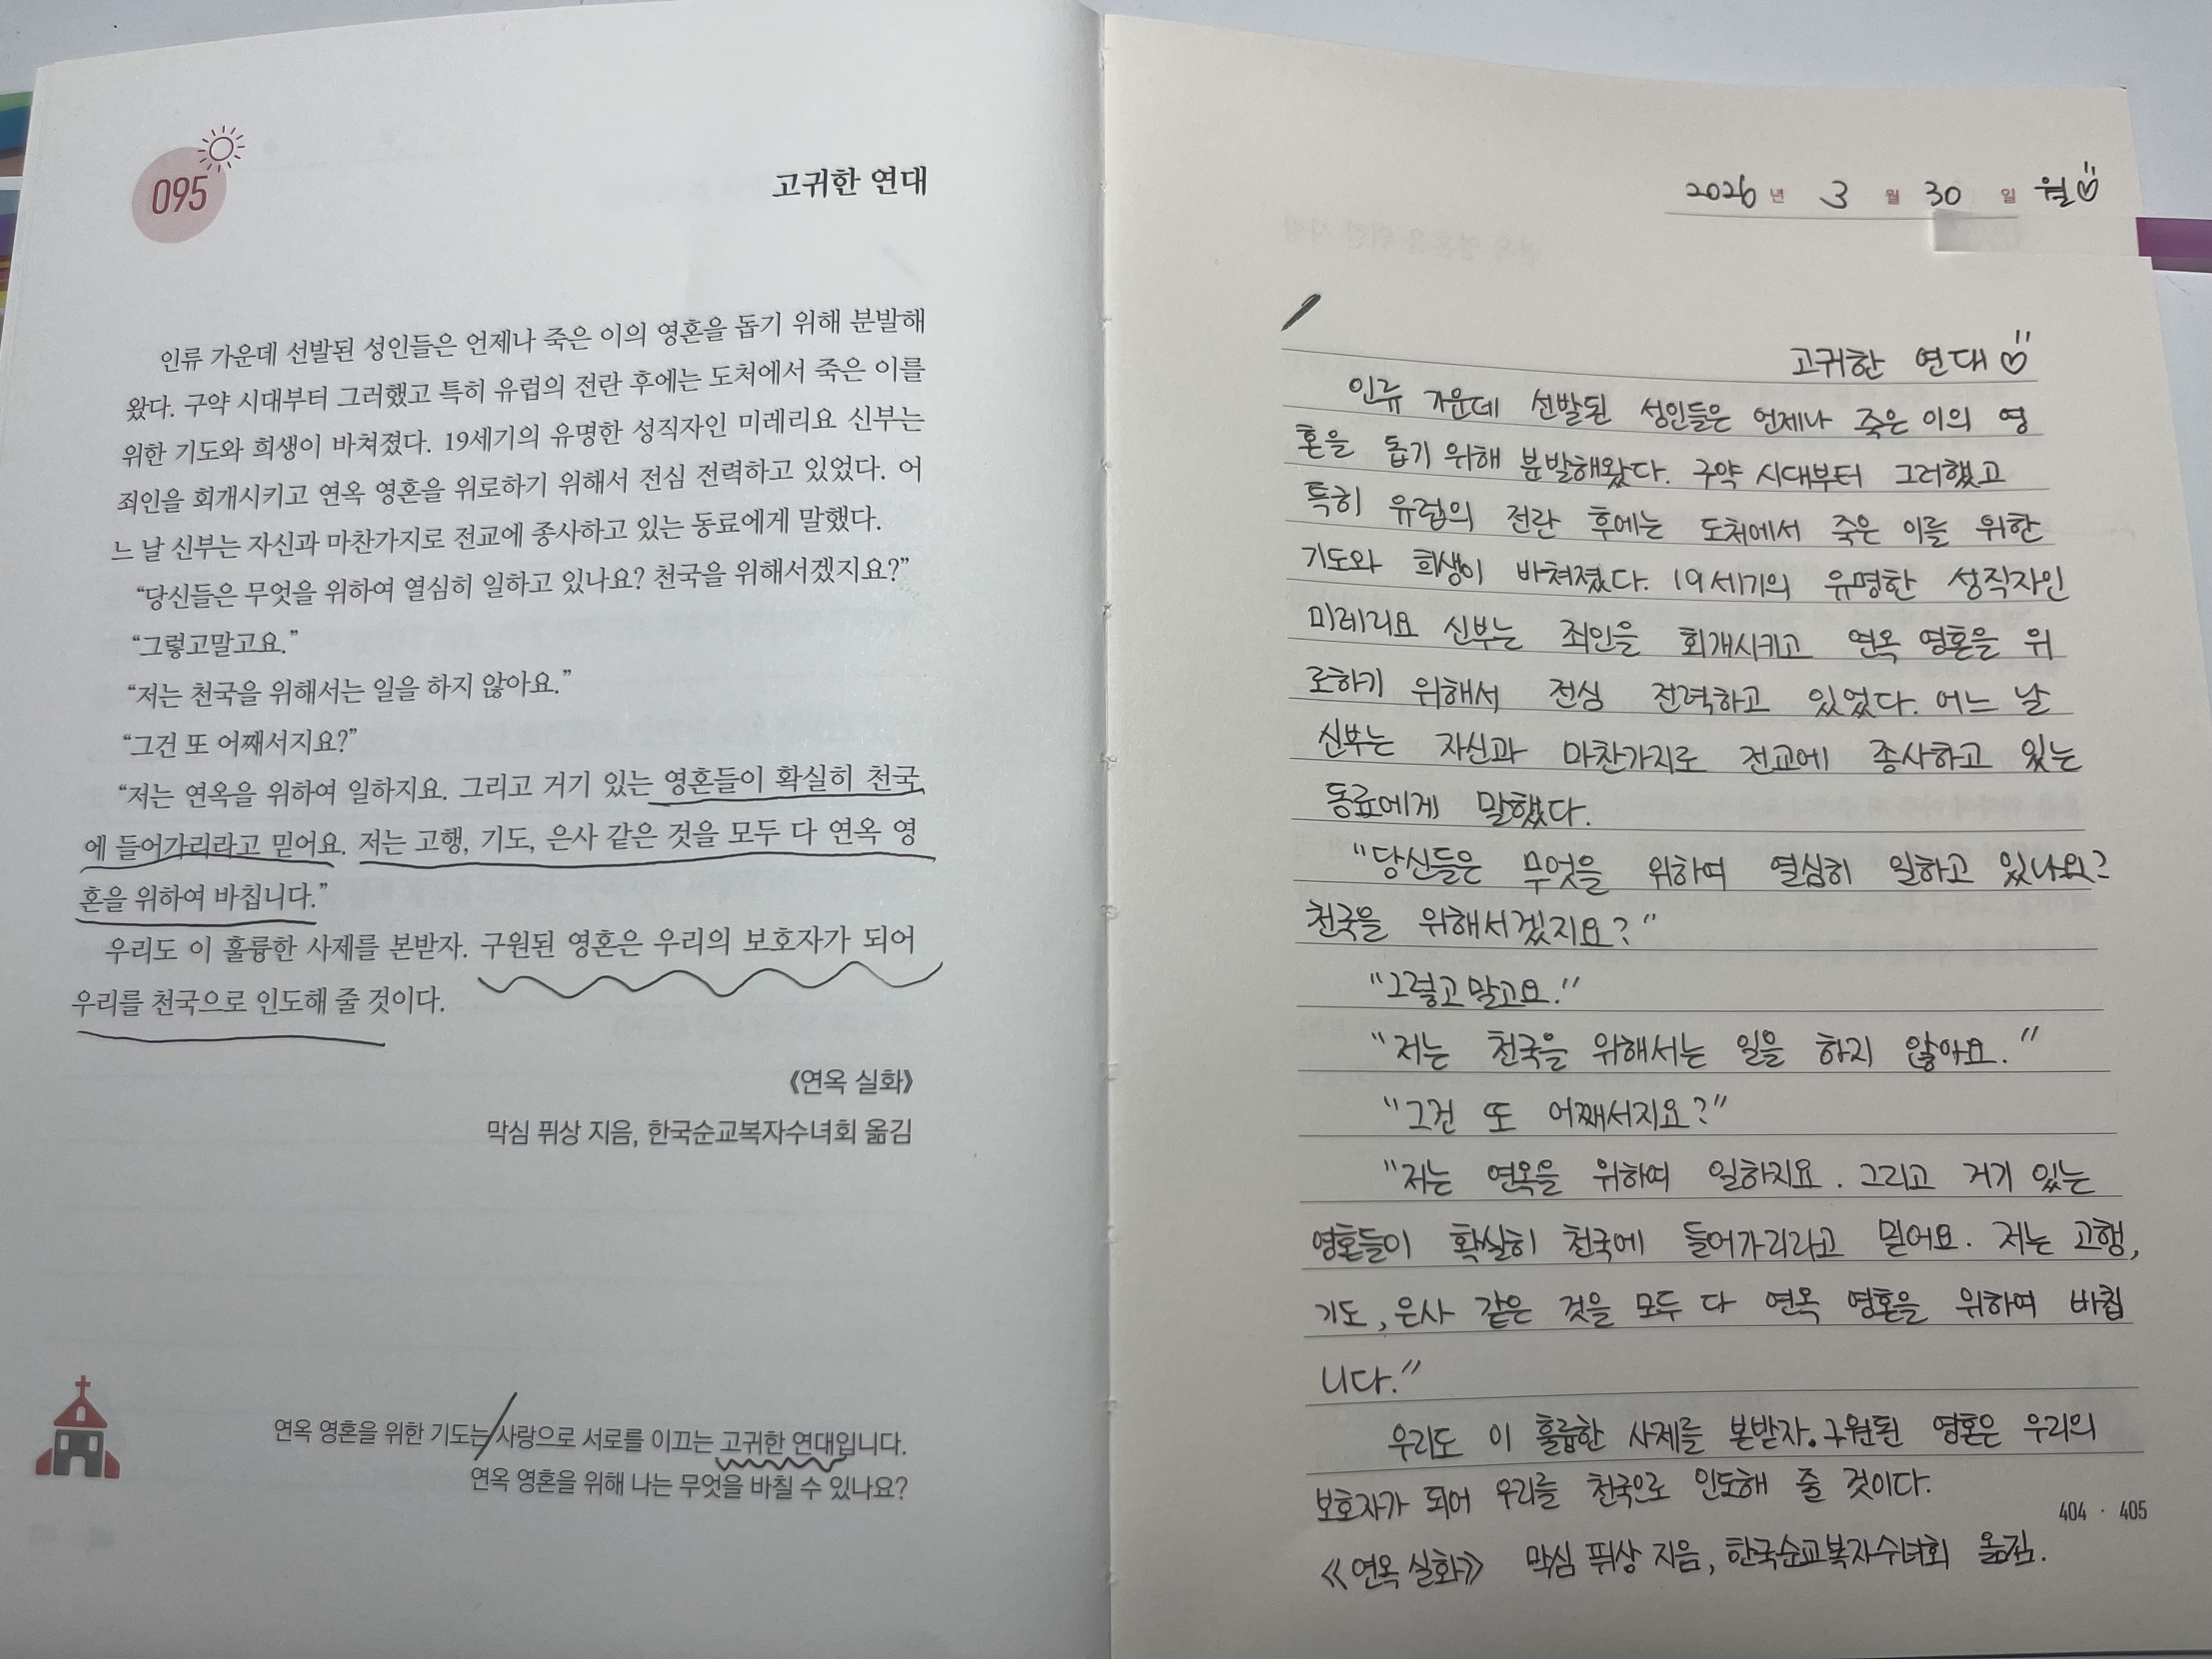 095
고귀한 연대
인류 가운데 선발된 성인들은 언제나 죽은 이의 영혼을 돕기 위해 분발해
왔다. 구약 시대부터 그러했고 특히 유럽의 전란 후에는 도처에서 죽은 이를
위한 기도와 희생이 바쳐졌다. 19세기의 유명한 성직자인 미레리요 신부는
죄인을 회개시키고 연옥 영혼을 위로하기 위해서 전심 전력하고 있었다. 어
느 날 신부는 자신과 마찬가지로 전교에 종사하고 있는 동료에게 말했다.
“당신들은 무엇을 위하여 열심히 일하고 있나요? 천국을 위해서겠지요?”
“그렇고말고요.”
“저는 천국을 위해서는 일을 하지 않아요.”
“그건 또 어째서지요?”
“저는 연옥을 위하여 일하지요. 그리고 거기 있는 영혼들이 확실히 천국
에 들어가리라고 믿어요. 저는 고행, 기도, 은사 같은 것을 모두 다 연옥 영
혼을 위하여 바칩니다.”
우리도 이 훌륭한 사제를 본받자. 구원된 영혼은 우리의 보호자가 되어
우리를 천국으로 인도해 줄 것이다.
《연옥 실화》
막심 퓌상 지음, 한국순교복자수녀회 옮김
연옥 영혼을 위한 기도는 사랑으로 서로를 이끄는 고귀한 연대입니다.
연옥 영혼을 위해 나는 무엇을 바칠 수 있나요?
2026 년 3 월 30 일 월
고귀한 연대
인류 가운데 선발된 성인들은 언제나 죽은 이의 영
혼을 돕기 위해 분발해왔다. 구약 시대부터 그러했고
특히 유럽의 전란 후에는 도처에서 죽은 이를 위한
기도와 희생이 바쳐졌다. 19세기의 유명한 성직자인
미레리요 신부는 죄인을 회개시키고 연옥 영혼을 위
로하기 위해서 전심 전력하고 있었다. 어느 날
신부는 자신과 마찬가지로 전교에 종사하고 있는
동료에게 말했다.
"당신들은 무엇을 위하여 열심히 일하고 있나요?
천국을 위해서겠지요?"
"그렇고말고요."
"저는 천국을 위해서는 일을 하지 않아요."
"그건 또 어째서지요?"
"저는 연옥을 위하여 일하지요. 그리고 거기 있는
영혼들이 확실히 천국에 들어가리라고 믿어요. 저는 고행,
기도, 은사 같은 것을 모두 다 연옥 영혼을 위하여 바칩
니다."
우리도 이 훌륭한 사제를 본받자. 구원된 영혼은 우리의
보호자가 되어 우리를 천국으로 인도해 줄 것이다.
404 · 405
《연옥 실화》 막심 퓌상 지음, 한국순교복자수녀회 옮김.